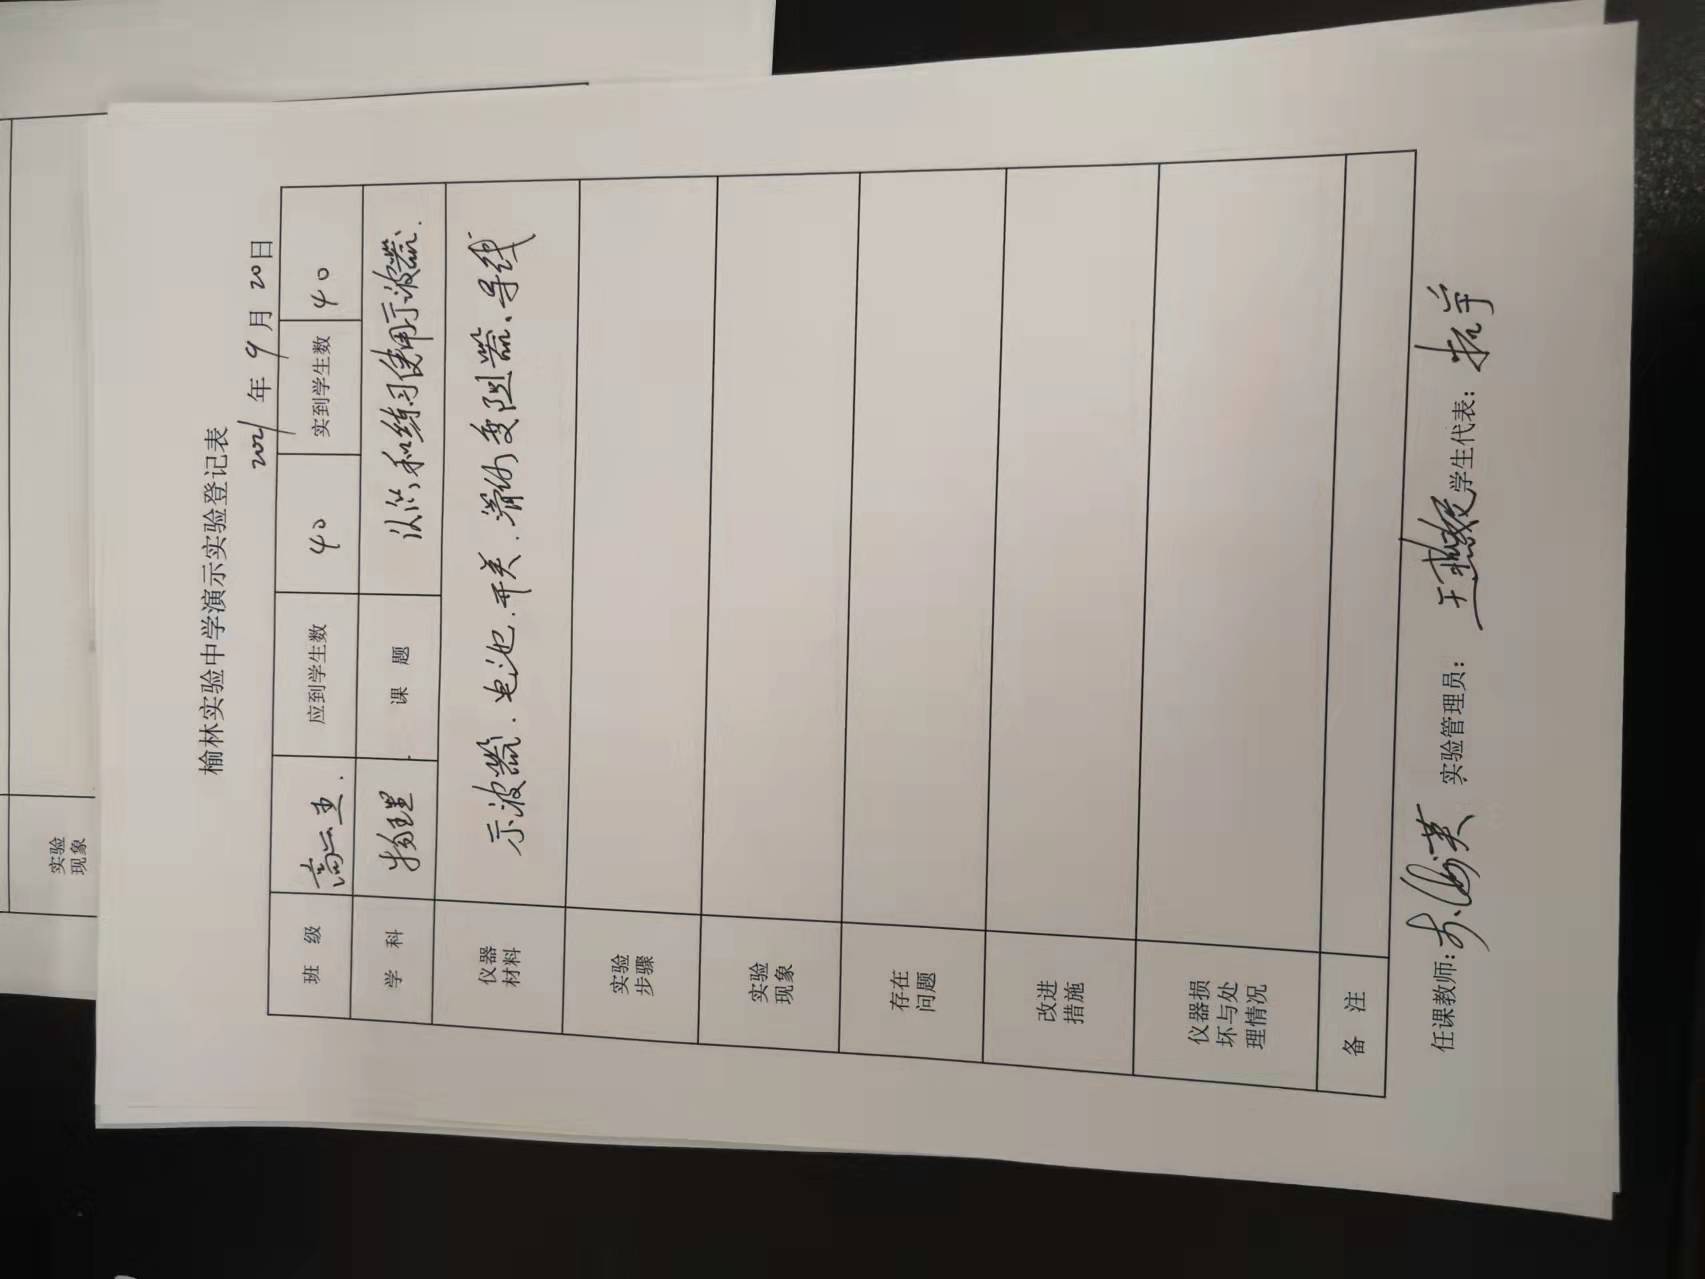 榆林实验中学演示实验登记表
2021年 9月 20日
班 级 高二 应到学生数 40 实到学生数 40
学 科 物理 课 题 认识和练习使用示波器.
仪器
材料
示波器.电池.开关.滑动变阻器、导线
实验
步骤
实验
现象
存在
问题
改进
措施
仪器损
坏与处
理情况
备 注
任课教师: 实验管理员: 学生代表:
实验
现象